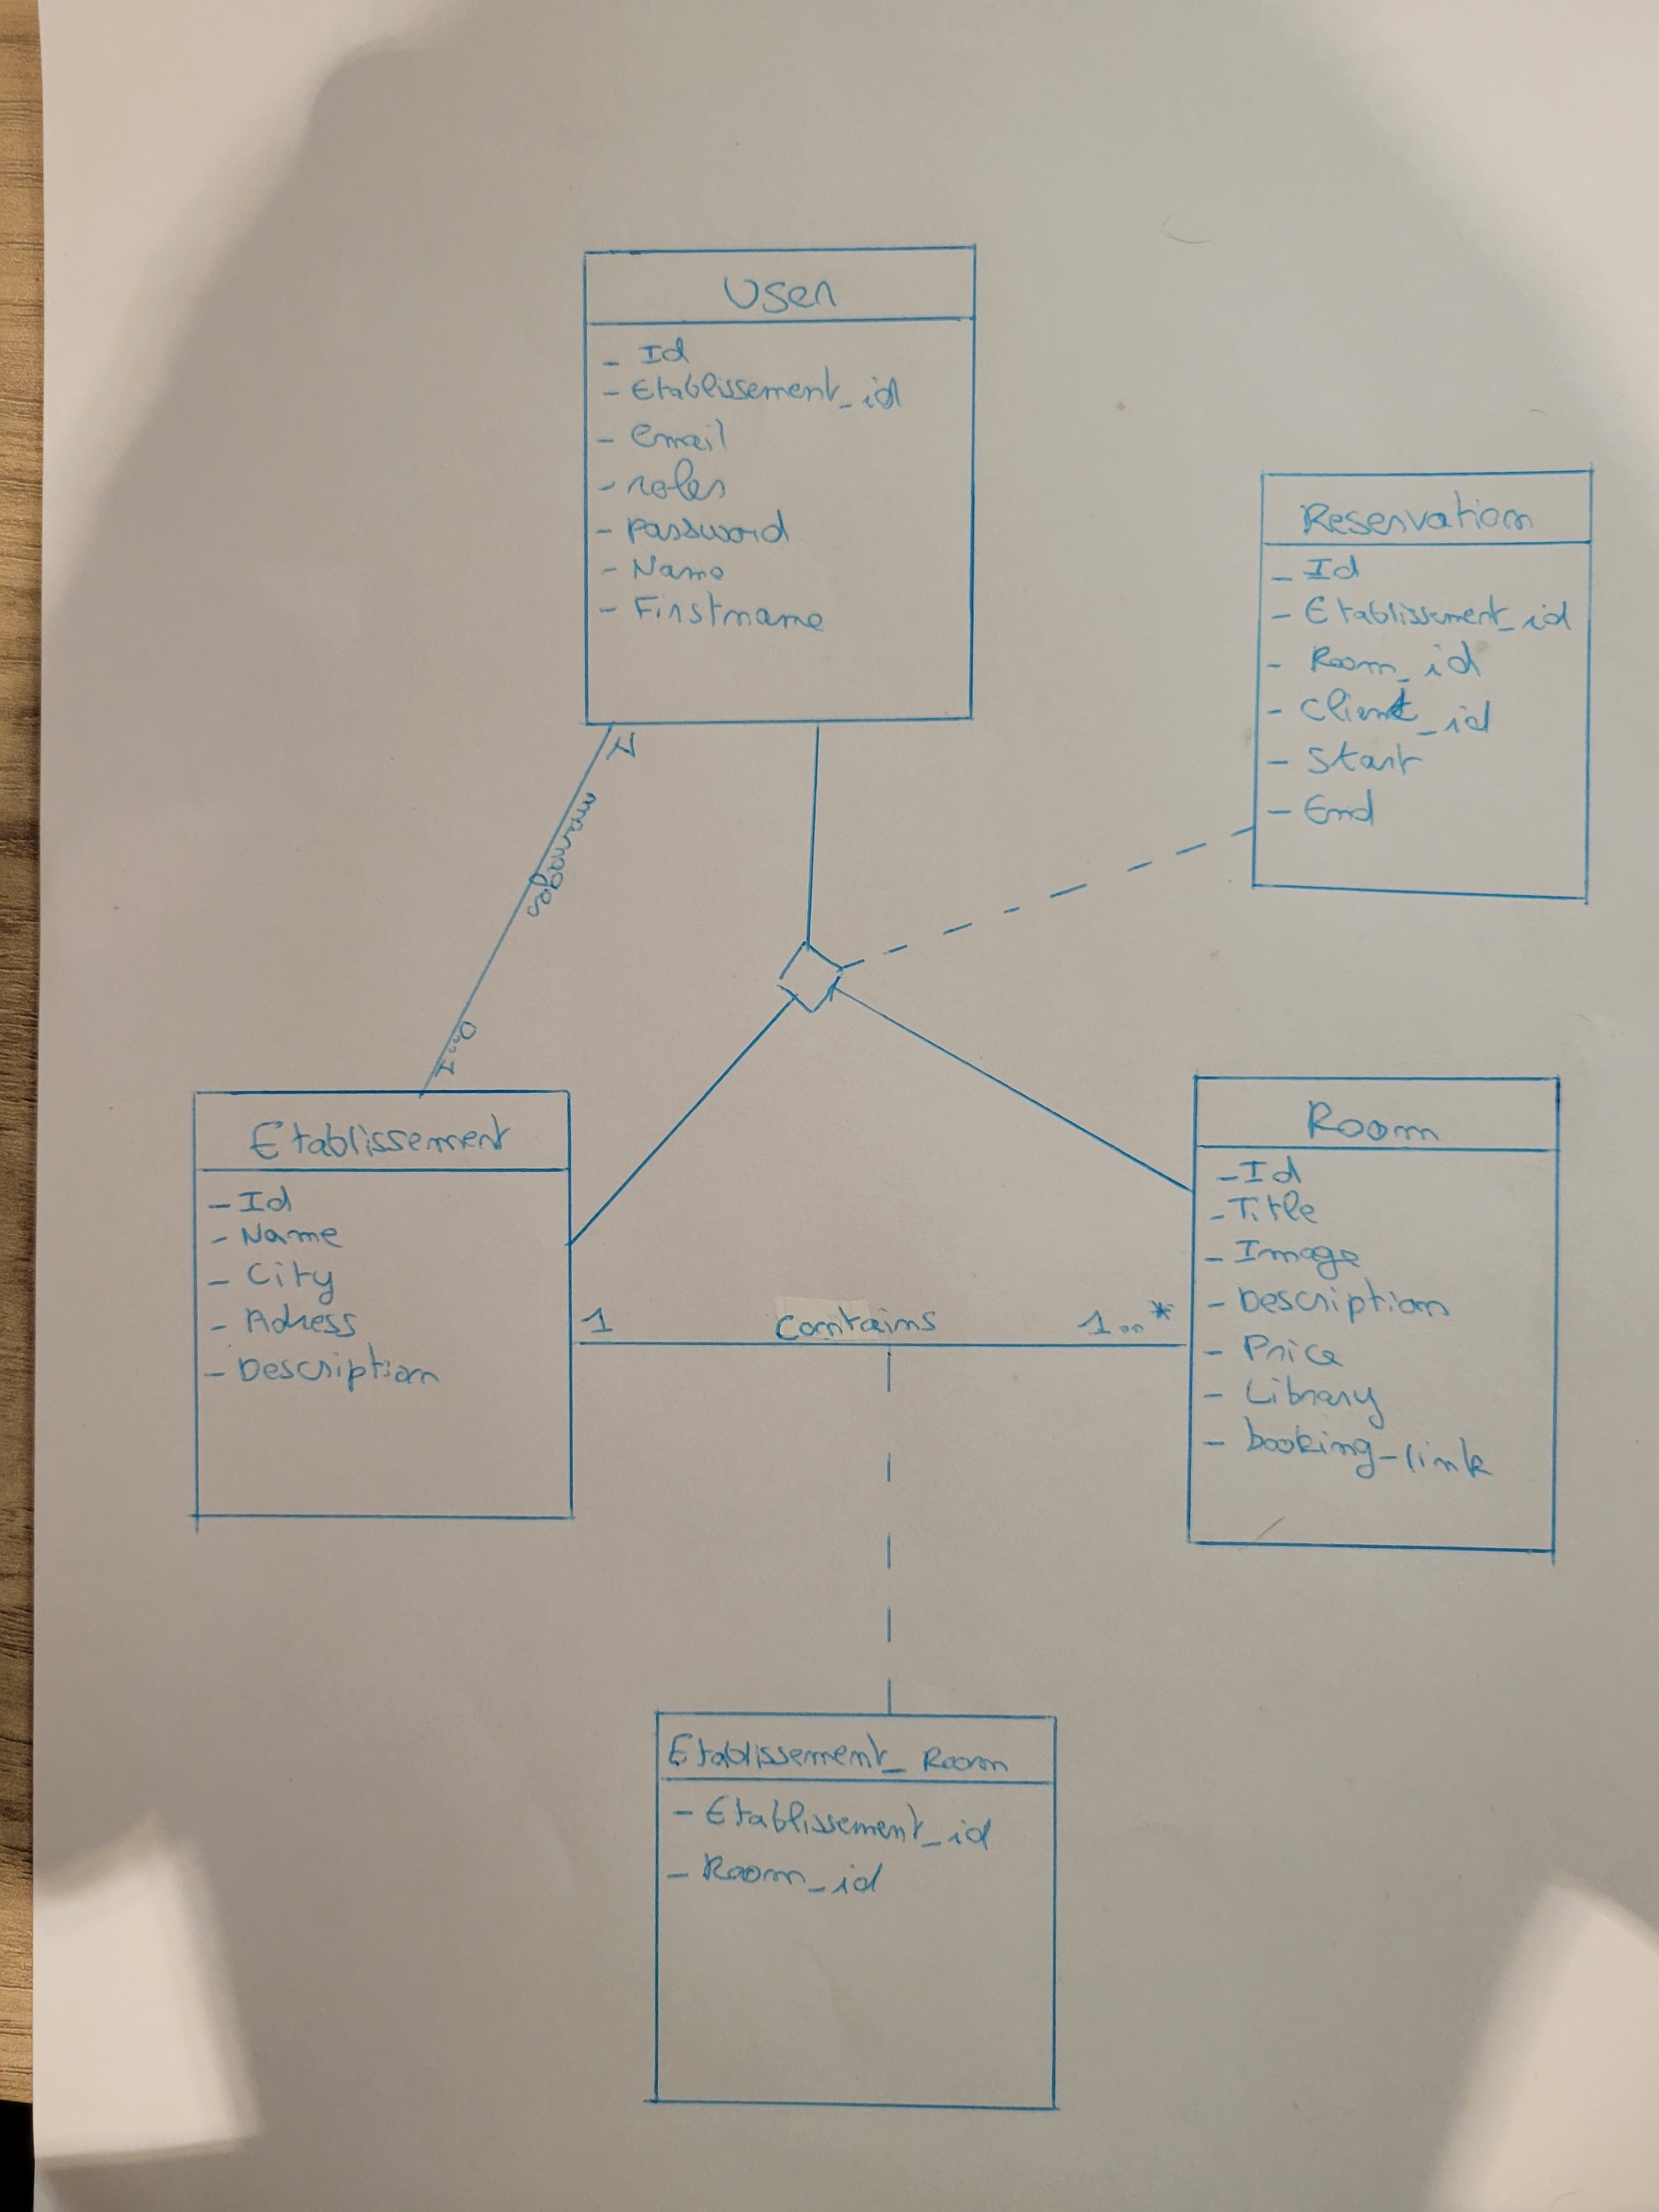 User
- Id
- Etablissement_id
- email
- roles
- password
- Name
- Firstname
Reservation
- Id
- Etablissement_id
- Room_id
- Client_id
- Start
- End
1
manages
0..1
Etablissement
- Id
- Name
- City
- Adress
- Description
Room
- Id
- Title
- Image
- Description
- Price
- Library
- booking_link
1 contains 1..*
Etablissement_Room
- Etablissement_id
- Room_id